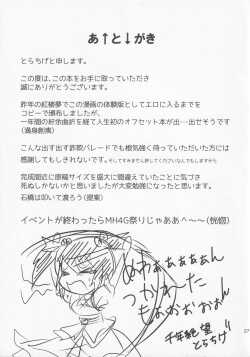 あ↑と↓がき
とらちげと申します。
この度は、この本をお手に取っていただき
誠にありがとうございます。
昨年の紅楼夢でこの漫画の体験版としてエロに入るまでを
コピーで頒布しましたが、
一年間の紆余曲折を経て人生初のオフセット本が出…出せそうです
(満身創痍)
こんな出す出す詐欺パレードでも根気強く待っていただいた方には
感謝してもしきれないです。そしてすみませんお許しくださいなんでもしますから
完成間近に原稿サイズを盛大に間違えていたことに気づき
死ぬしかないかと思いましたが大変勉強になったと
石橋は叩いて渡ろう(提案)
イベントが終わったらMH4G祭りじゃああ^~~(恍惚)
めわぁぁぁぁぁん
つかれーた
もおおおおおん
千年絶望
とらちげ